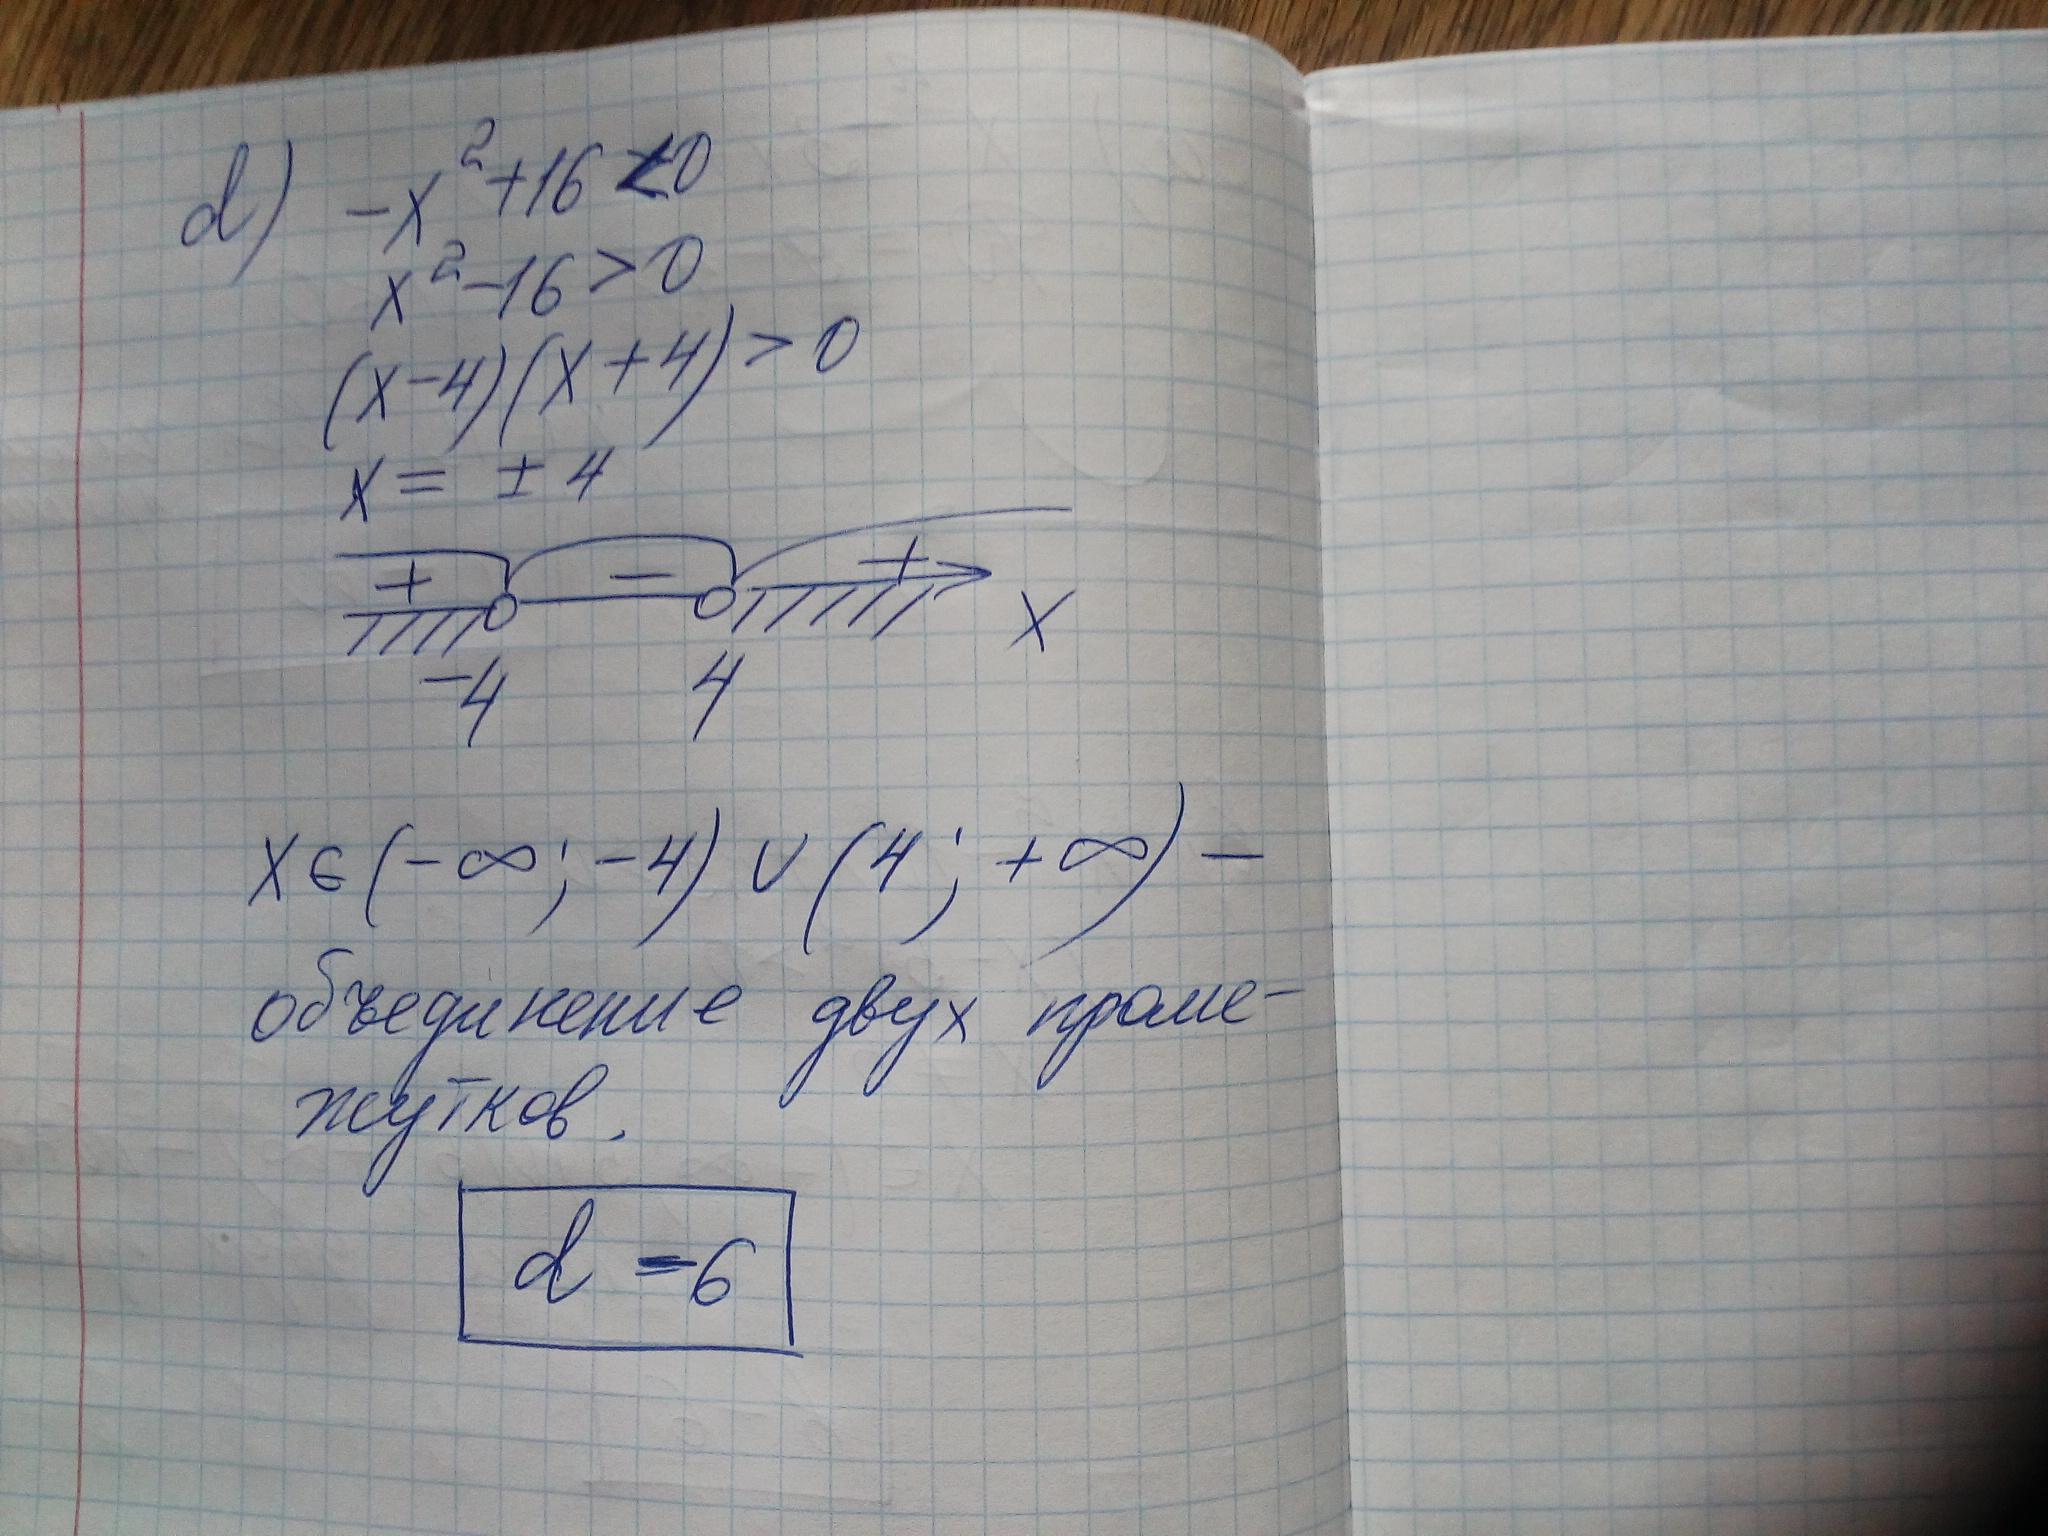 d) -x²+16<0
x²-16>0
(x-4)(x+4)>0
x= ±4
+ - +
-4 4 x
x∈(-∞;-4)∪(4;+∞) -
объединение двух проме-
жутков.
d - 6